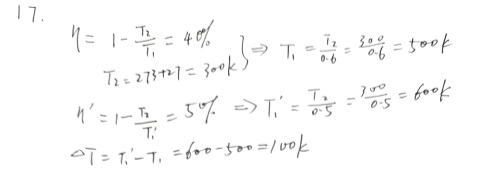 17.
η = 1 - T₂/T₁ = 40%
T₂ = 273+27 = 300k } ⇒ T₁ = T₂/0.6 = 300/0.6 = 500k
η' = 1 - T₂/T₁' = 50% ⇒ T₁' = T₂/0.5 = 300/0.5 = 600k
△T = T₁' - T₁ = 600 - 500 = 100k